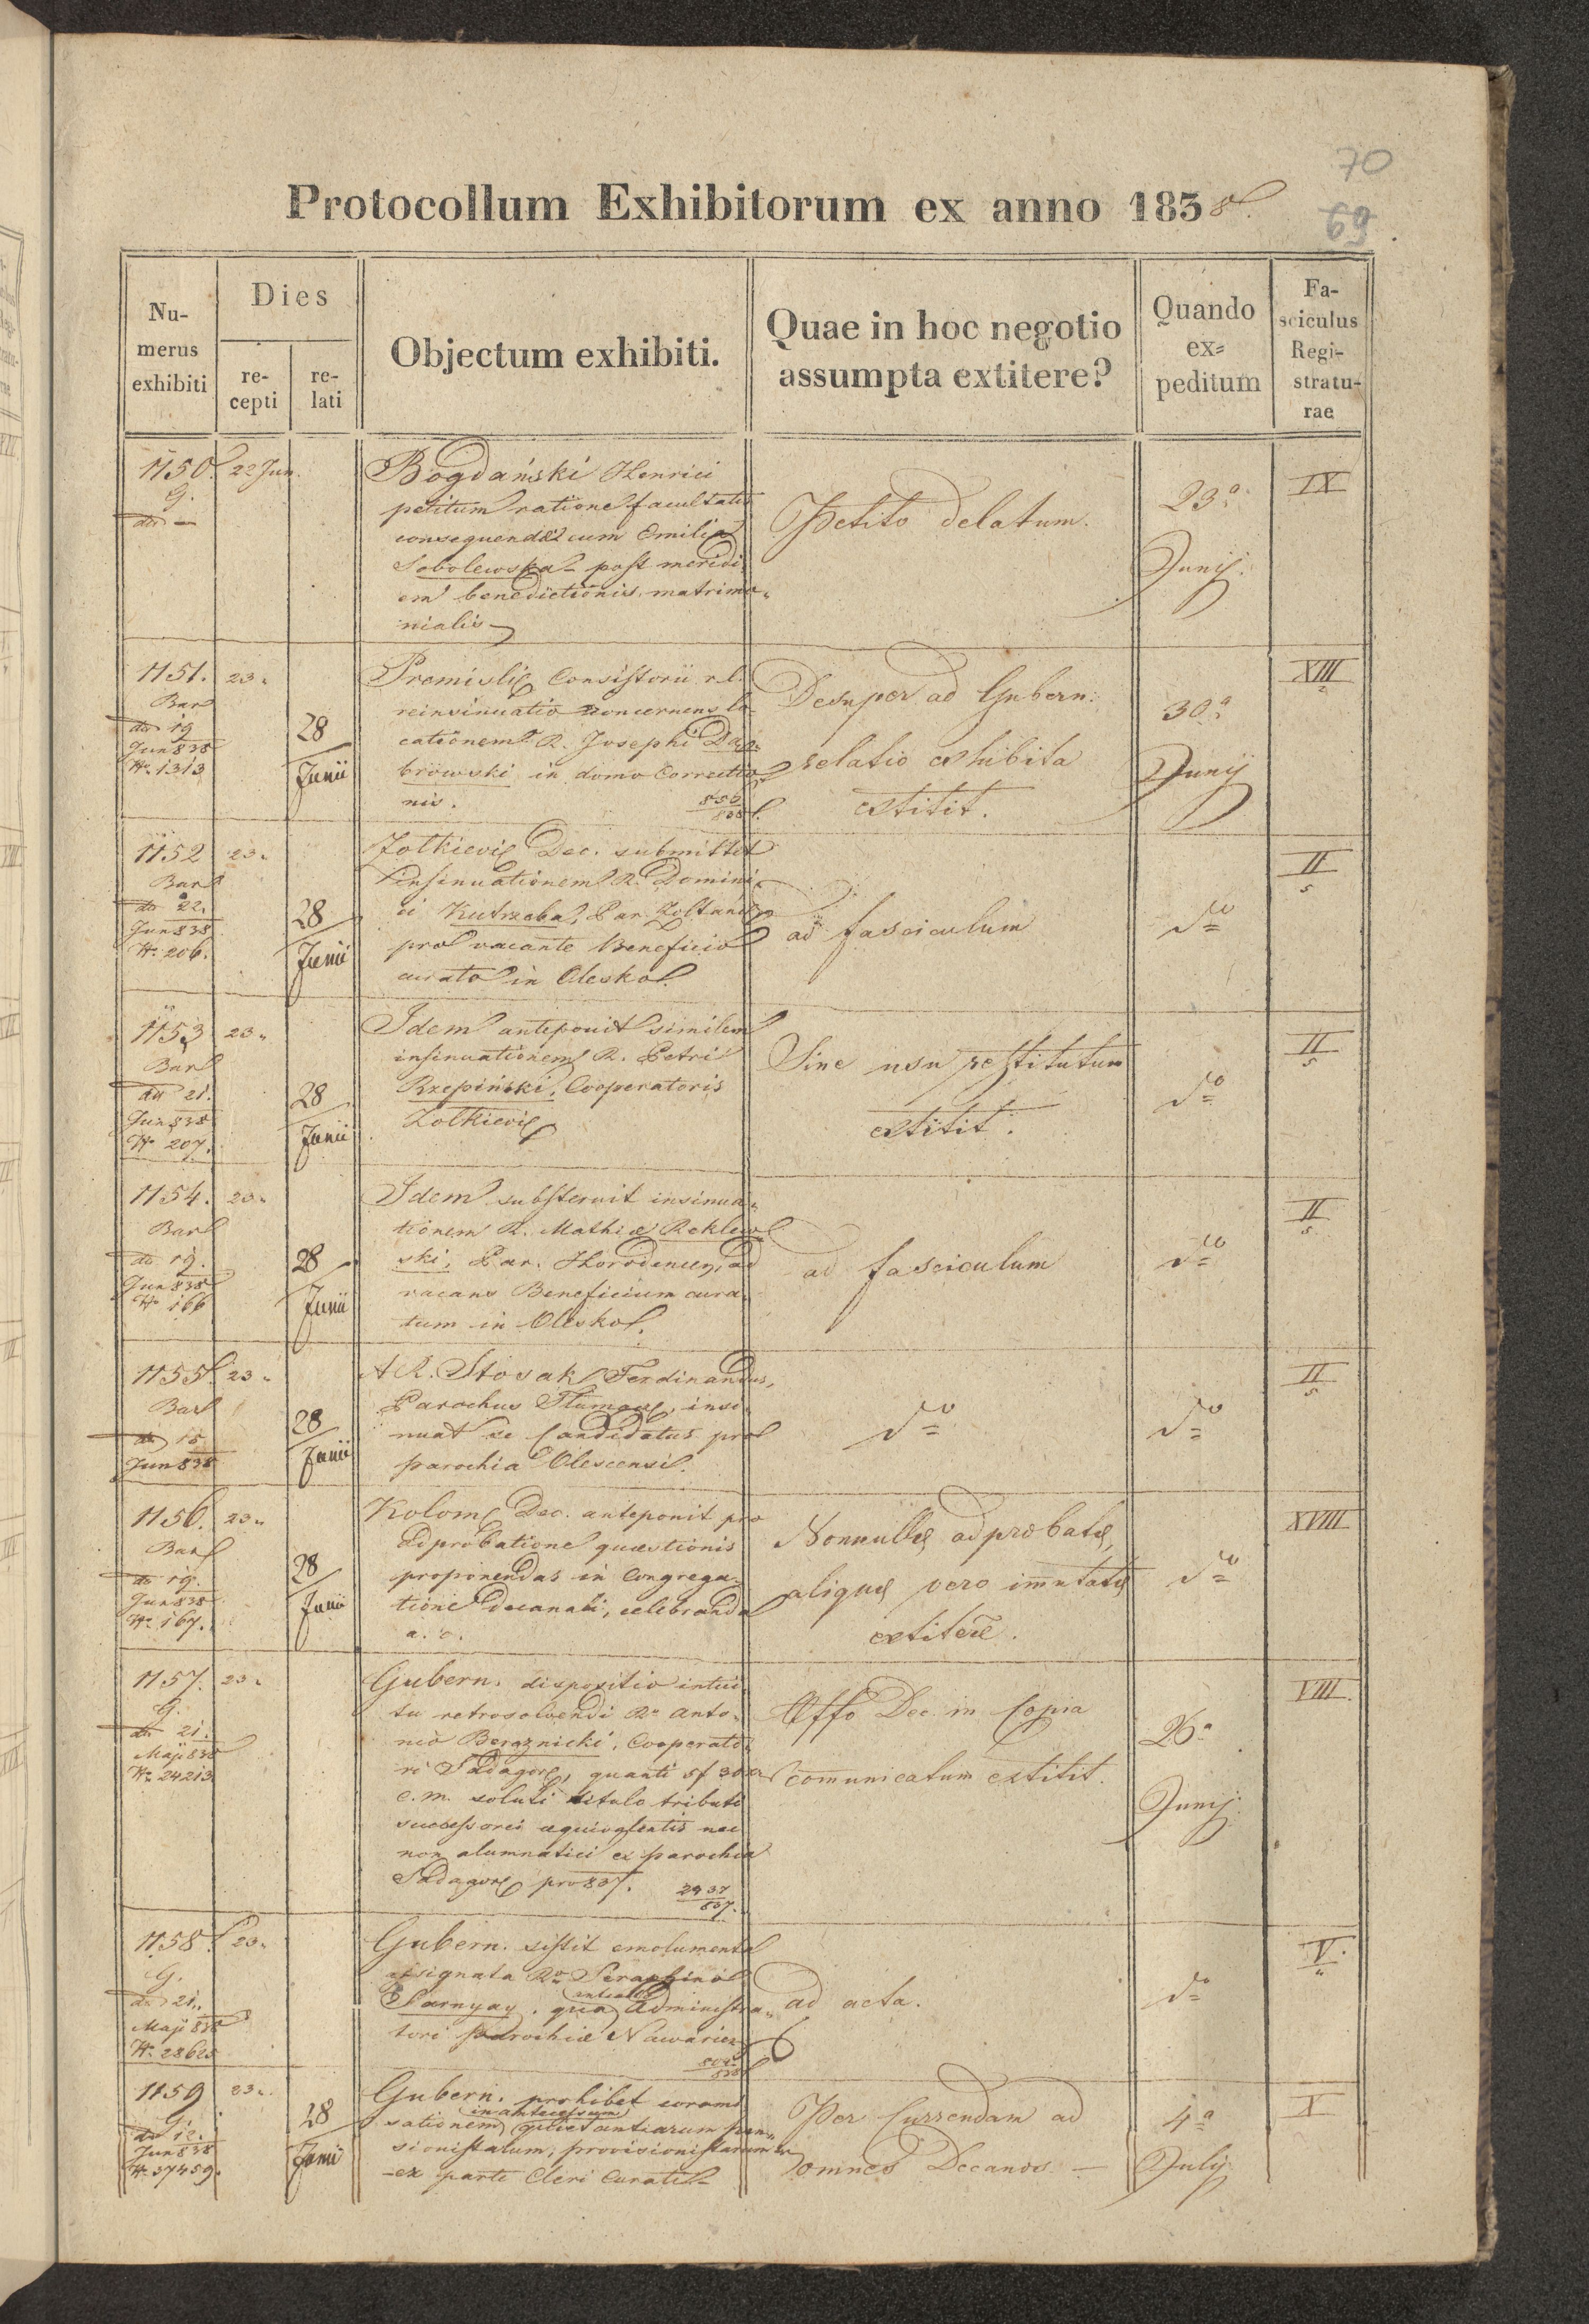 70
69
Protocollum Exhibitorum ex anno 1838.
Numerus exhibiti
Dies
recepti
relati
Objectum exhibiti.
Quae in hoc negotio assumpta extitere?
Quando expeditum
Fasciculus Registraturae
1150. 22 Jun.
G.
Bogdański Henrici
petitum ratione facultatis
consequendae cum Emilia
Sobolewska post meridi
em benedictionis matrimo-
nialis
Petito delatum.
23a
Junij.
IX
1151. 23.
Bar
do 19
Jun 838
No 1313
28
Junii
Premisli Consistorii r.l.
reinsinuatio concernens lo-
cationem R. Josephi Dą-
browski in domo Correctio
nis. 838
Desuper ad Gubern.
relatio exhibita
extitit.
30a
Junij
XIII
2
1152 23.
Bar
do 22.
Jun 838
No 206.
28
Junii
Zolkievi Dec. submittit
insinuationem R. Domini
ci Kutrzeba, Par. Zoltanc
pro vacante Beneficio
curato in Olesko.
ad fasciculum
do
II
5
1153 23.
Bar
do 21.
Jun 838
No 207.
28
Junii
Idem anteponit similem
insinuationem R. Petri
Rzepiński, Cooperatoris
Zolkievi
Sine usu restitutum
extitit.
do
II
5
1154. 23.
Bar
do 19.
Jun 838
No 166
28
Junii
Idem substernit insinua-
tionem R. Mathiae Reklew
ski, Par. Horodencen, ad
vacans Beneficium cura-
tum in Olesko.
ad fasciculum
do
II
5
1155. 23.
Bar
do 15
Jun 838
28
Junii
A R. Stosak Ferdinandus,
Parochus Tlumac, insi-
nuat se Candidatus pro
parochia Olescensi.
do
do
II
5
1156. 23.
Bar
do 19.
Jun 838
No 167.
28
Junii
Kolom Dec. anteponit pro
adprobatione quaestionis
proponendas in Congrega-
tione decanali, celebranda
a. c.
Nonnullae adprobatae,
aliquae vero immutatae
extitere.
do
XVIII
1157. 23.
G.
do 21.
Maji 838
No 24213
Gubern. dispositio intui
tu retrosolvendi Ro Anto-
nio Beraznicki, Cooperato
ri Sadagor, quanti 5f 30x
c.m. soluti titulo tributi
successorei aequivalentis nec
non alumnatici ex parochia
Sadagor pro 837. 2437
837.
Offo Dec. in Copia
comunicatum extitit.
26a
Junij.
VIII.
1158. 23.
G.
do 21.
Maji 838
No 28625
Gubern. sistit emolumenta
assignata Ro Seraphino
Szarnyay, qua Administra-
tori parochiae Nawarien
838
ad acta.
do
V.
1159 23.
G.
do 12.
Jun 838
No 37459.
28
Junii
Gubern. prohibet coram
in antecessum
sationem quietantiarum pen-
sionistarum, provisionistarum
ex parte Cleri Curati
Per Currendam ad
omnes Decanos.
4a
Julij
X